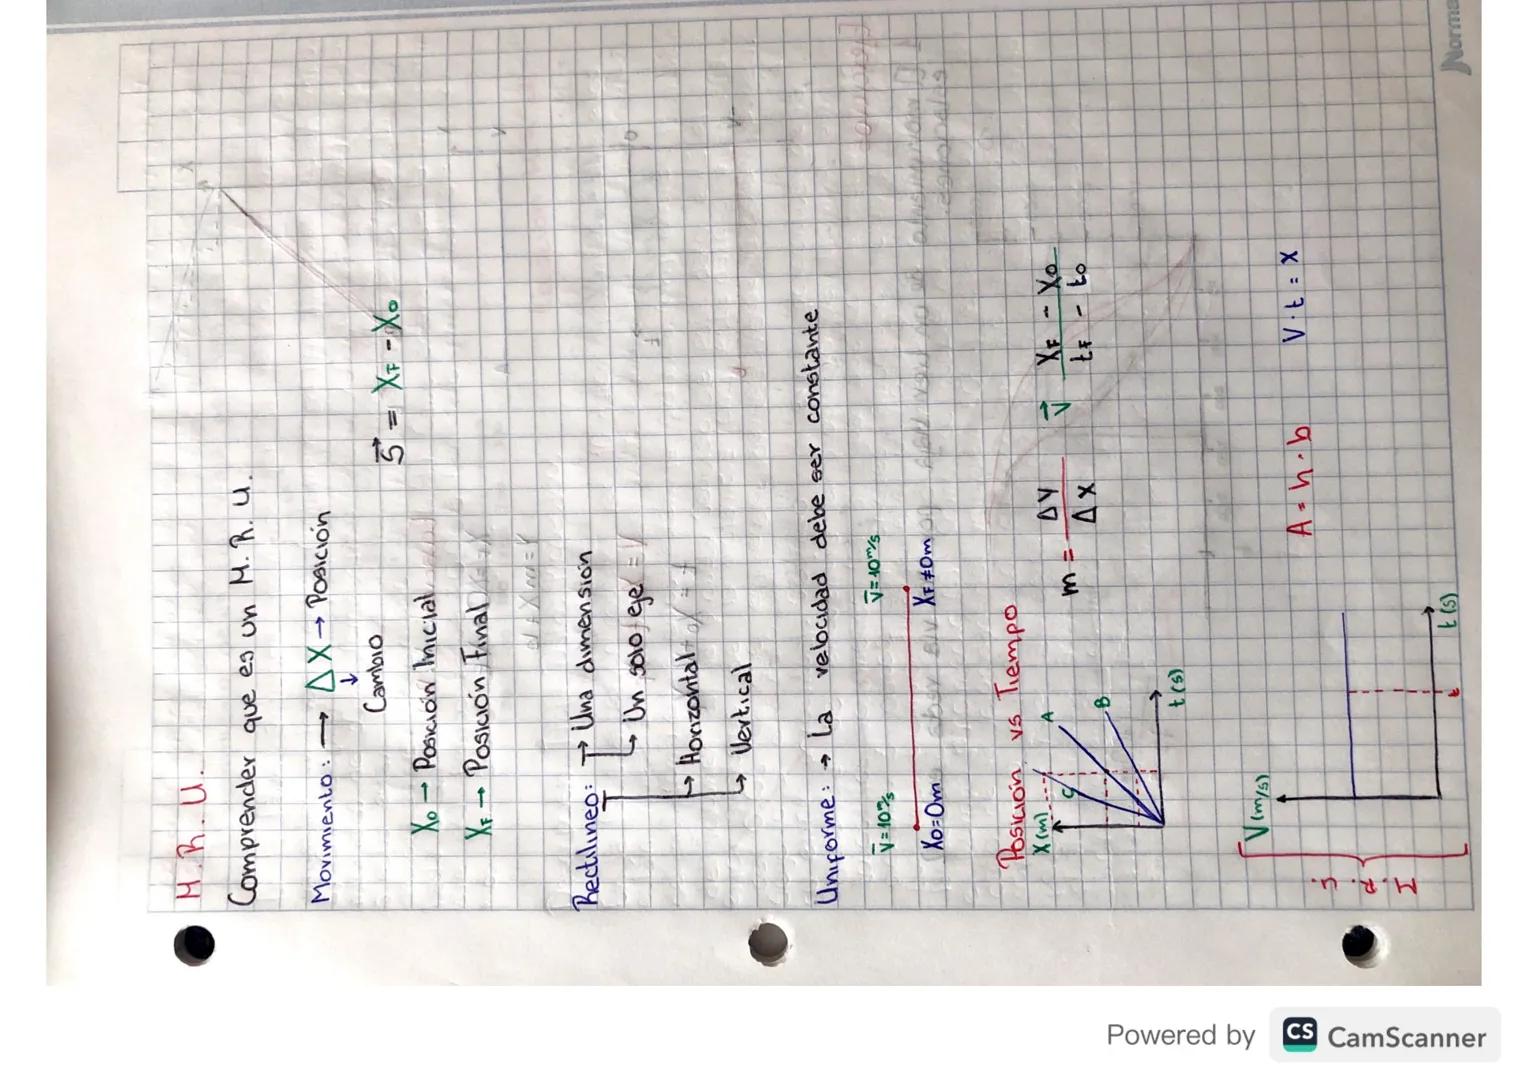 M.R.U.
Comprender que es un M.R.U.
Movimiento: → ΔX → Posición
↓
Cambio
S⃗ = XF - X0
X0 → Posición Inicial
XF → Posición Final
Rectilineo: → Una dimensión
↳ Un solo eje
↳ Horizontal
↳ Vertical
Uniforme: → La velocidad debe ser constante
V̅=10m/s V̅=10m/s
X0=0m XF≠0m
Posición vs Tiempo
X(m)
C A B
t(s)
m = ΔY / ΔX
V⃗ XF - X0 / tF - t0
V(m/s)
t
t(s)
A = h·b V·t = X
Norma
Powered by CS CamScanner